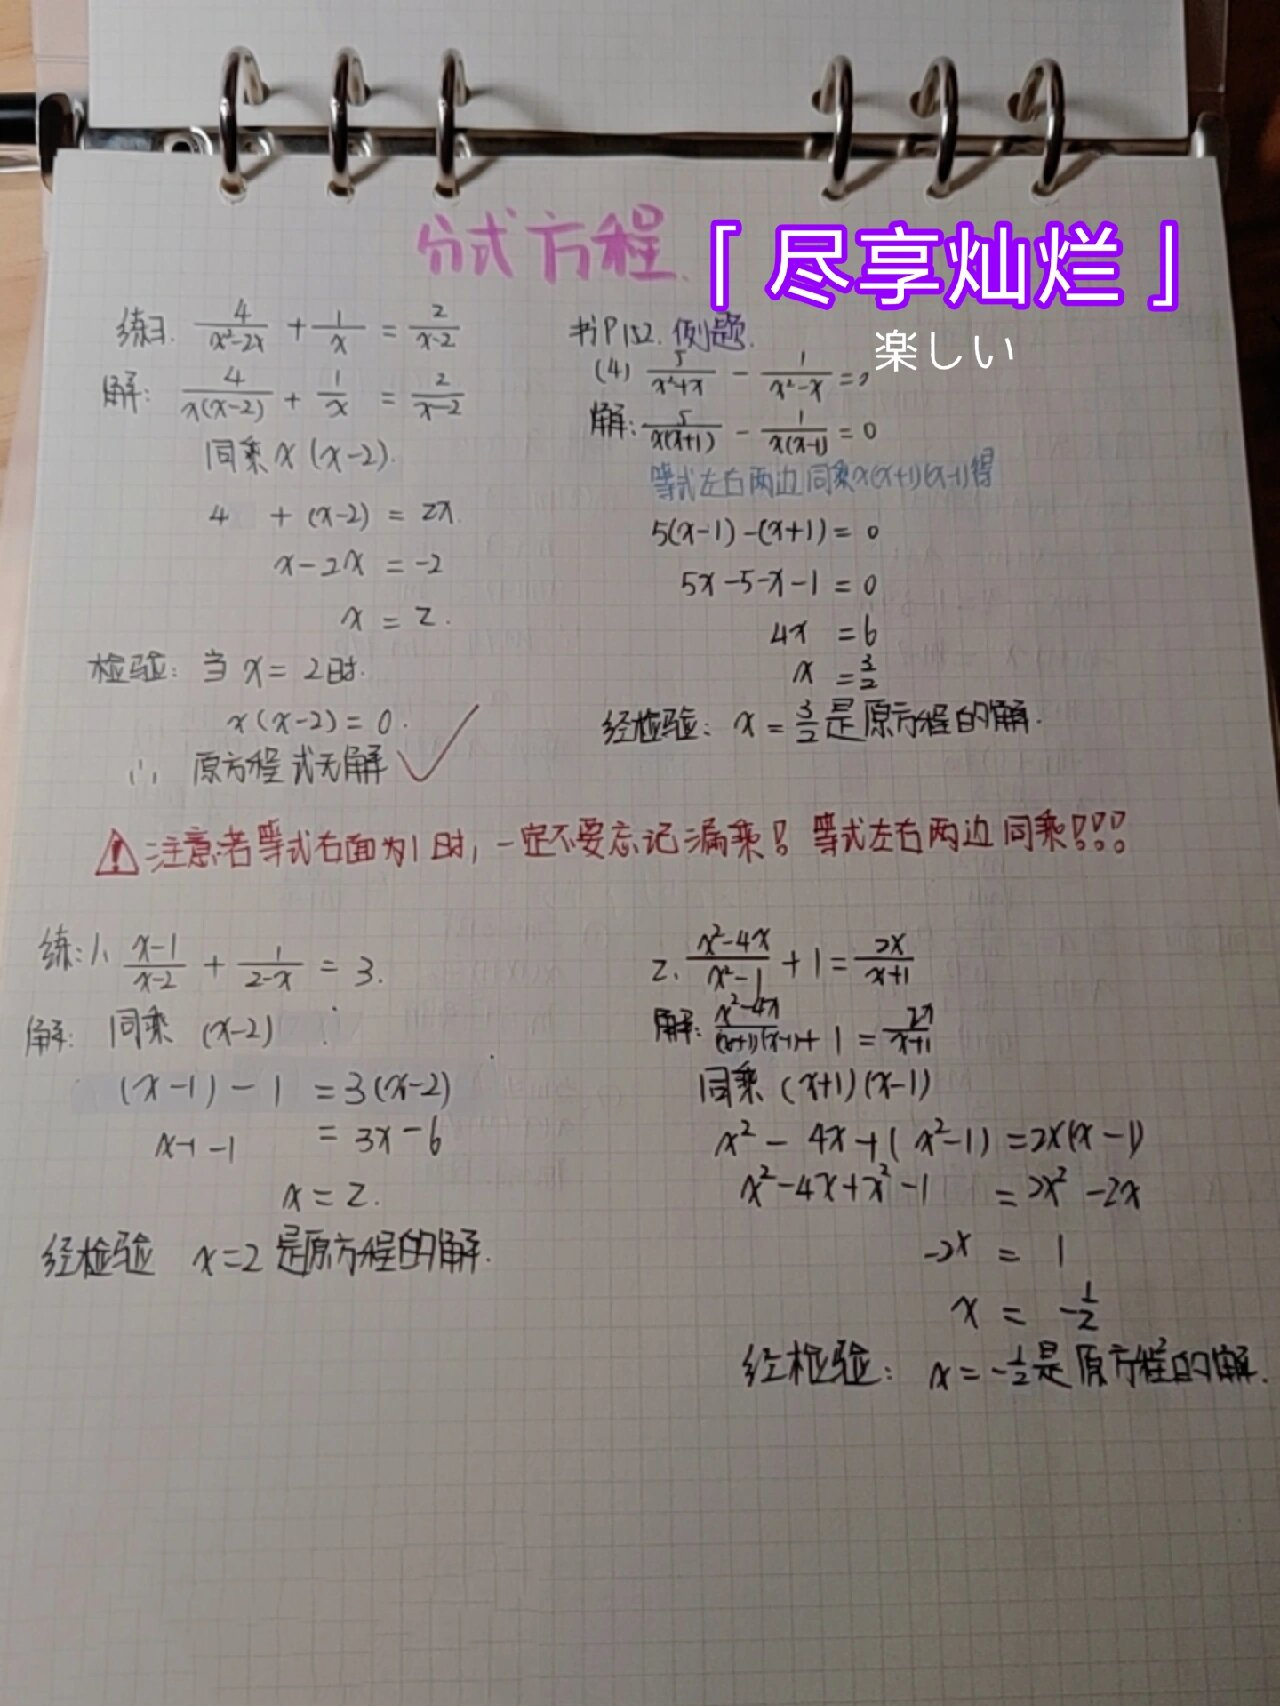 分式方程.
「尽享灿烂」
楽しい
练3. 4/(x²-2x) + 1/x = 2/(x-2)
解: 4/(x(x-2)) + 1/x = 2/(x-2)
同乘 x(x-2).
4 + (x-2) = 2x.
x-2x = -2
x = 2.
检验: 当 x = 2时.
x(x-2) = 0.
∴ 原方程式无解
书P152. 例题.
(4) 5/(x²+x) - 1/(x²-x) = 0
解: 5/(x(x+1)) - 1/(x(x-1)) = 0
等式左右两边同乘x(x+1)(x-1)得
5(x-1)-(x+1) = 0
5x-5-x-1 = 0
4x = 6
x = 3/2
经检验: x = 3/2 是原方程的解.
注意若等式右面为1时, 一定不要忘记漏乘! 等式左右两边同乘!!!
练: 1、 (x-1)/(x-2) + 1/(2-x) = 3.
解: 同乘 (x-2)
(x-1) - 1 = 3(x-2)
x-1-1 = 3x-6
x = 2.
经检验 x=2 是原方程的解.
2、 (x²-4x)/(x²-1) + 1 = 2x/(x+1)
解: (x²-4x)/((x+1)(x-1)) + 1 = 2x/(x+1)
同乘 (x+1)(x-1)
x² - 4x + (x²-1) = 2x(x-1)
x²-4x+x²-1 = 2x²-2x
-2x = 1
x = -1/2
经检验: x = -1/2 是原方程的解.